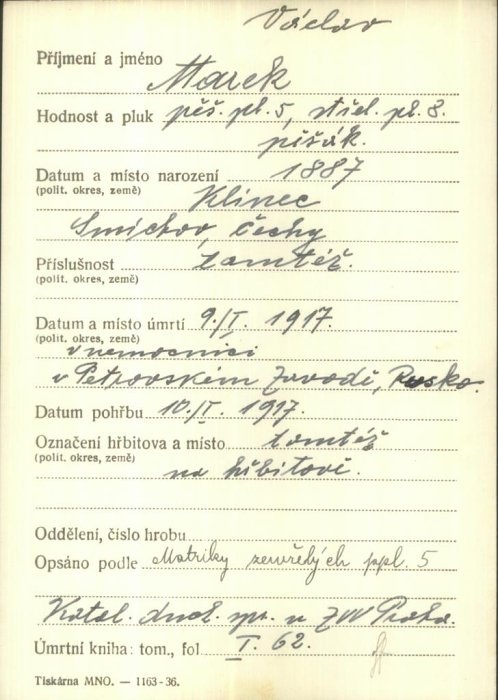 Václav
Příjmení a jméno Marek
Hodnost a pluk pěš. pl. 5, střel. pl. 8.
pěšák.
Datum a místo narození 1887
(polit. okres, země) Klínec
Smíchov, Čechy
Příslušnost tamtéž.
(polit. okres, země)
Datum a místo úmrtí 9./I. 1917.
(polit. okres, země)
v nemocnici
v Petrovském Zavodě, Rusko.
Datum pohřbu 10./I. 1917.
Označení hřbitova a místo tamtéž
(polit. okres, země)
na hřbitově.
Oddělení, číslo hrobu
Opsáno podle Matriky zemřelých ppl. 5
Katol. duch. spr. u ZVV Praha.
Úmrtní kniha: tom., fol I. 62.
Tiskárna MNO. — 1163-36.